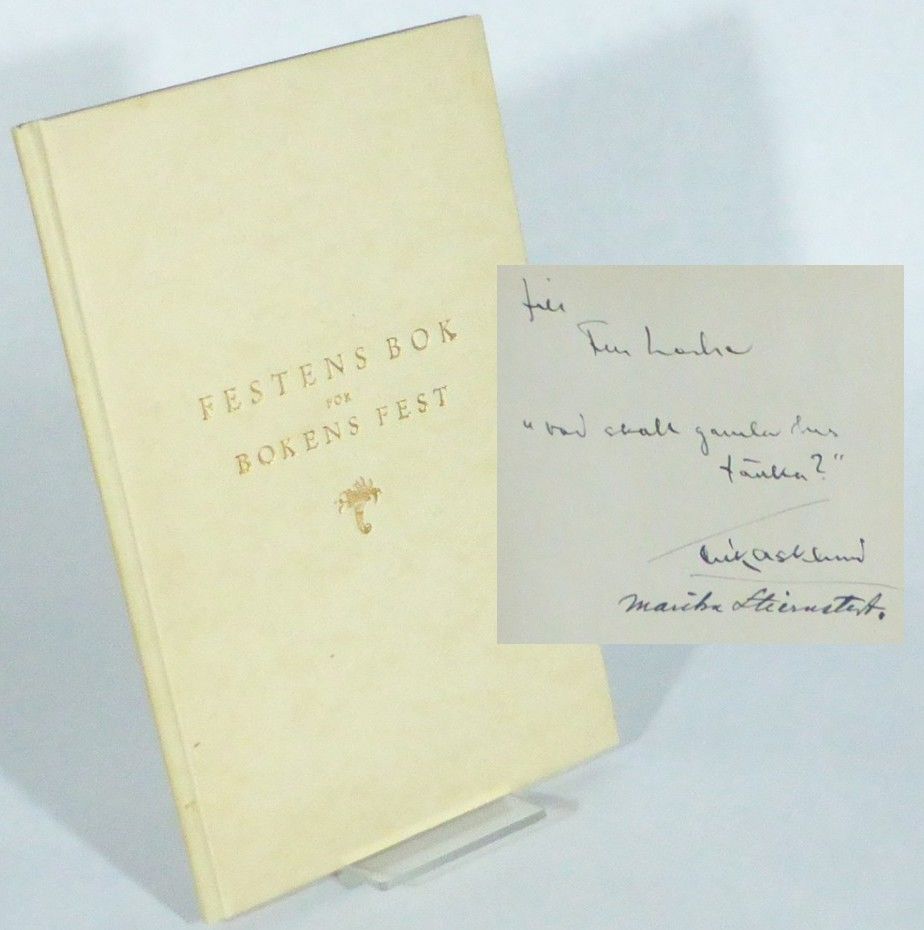 FESTENS BOK
FÖR
BOKENS FEST
till
"vad skall gamla
tänka?"
Erik Asklund
Marika Stiernstedt.